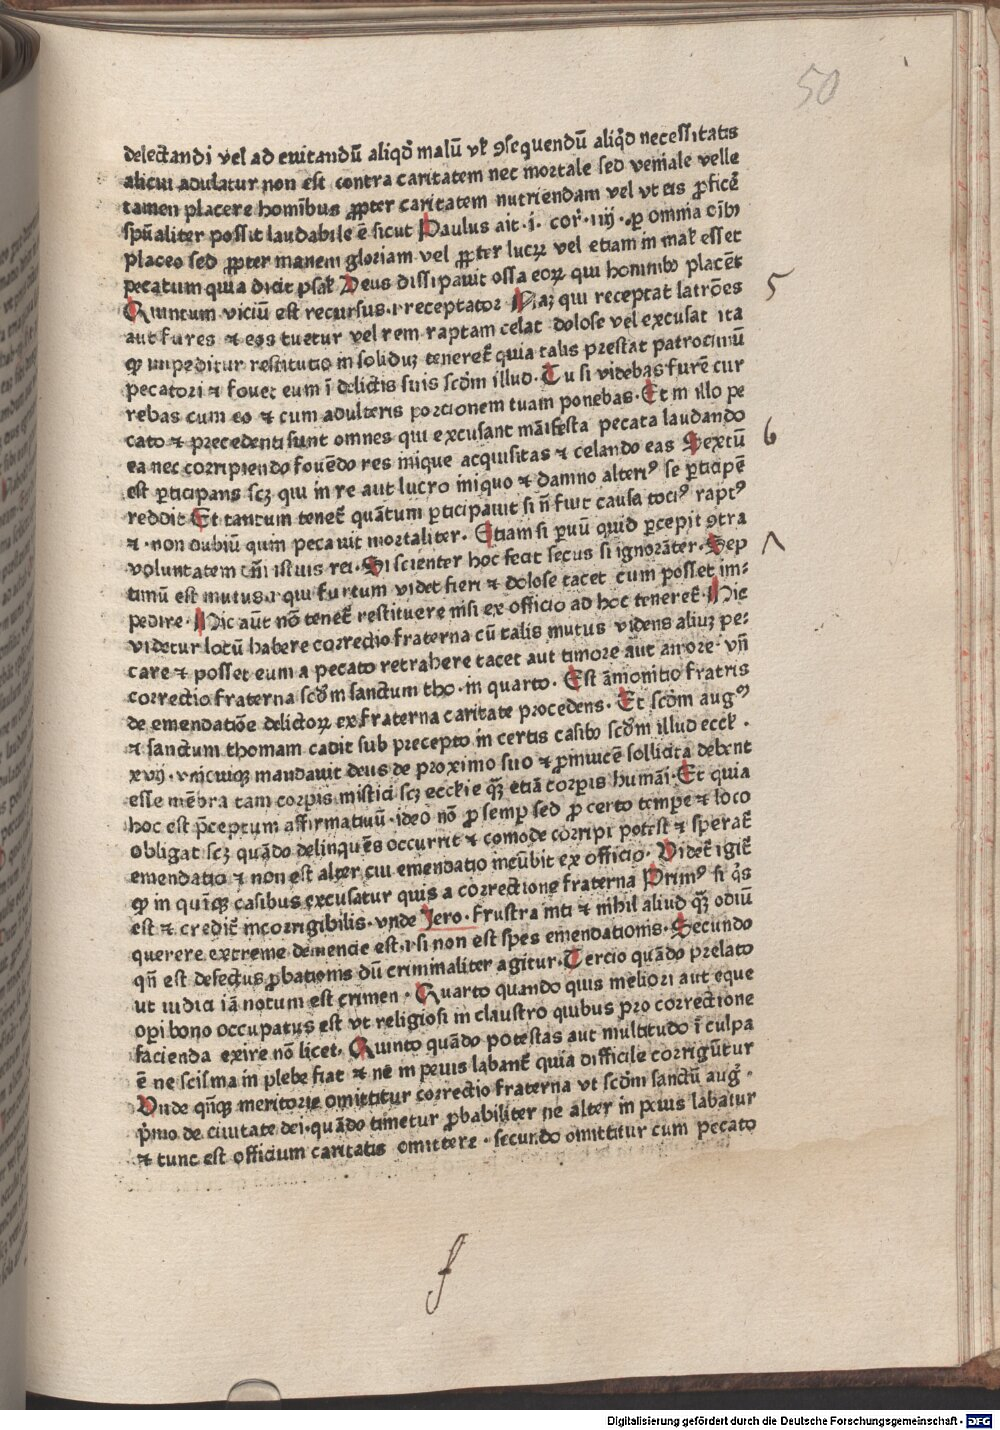 50
delectandi vel ad euitandū aliqđ malū vƚ ꝯsequendū aliqđ necessitatis
alicui adulatur non est contra caritatem nec mortale sed veniale velle
tamen placere hominibus ꝓpter caritatem nutriendam vel vt eis ꝓficē
spūaliter possit laudabile ē sicut Paulus ait · i · cor · iiij · ꝑ omnia oīb
placeo sed ꝓpter inanem gloriam vel ꝓpter lucꝝ vel etiam in maƚ esset
pecatum quia dicit psaƚ Deus dissipauit ossa eoꝝ qui hominibꝰ placēt
Quintum viciū est recursus · i receptator Naꝫ qui receptat latrōes
5
aut fures ⁊ eos tuetur vel rem raptam celat dolose vel excusat ita
ꝙ impeditur restitutio in soliduꝫ teneret̄ quia talis prestat patrociniū
pecatori ⁊ fouet eum ī delictis suis scdm̄ illud · Tu si videbas furē cur
rebas cum eo ⁊ cum adulteris portionem tuam ponebas · Et in illo pe
cato ⁊ precedenti sunt omnes qui excusant māifesta pecata laudando
ea nec corripiendo fouēdo res inique acquisitas ⁊ celando eas Sextū
6
est ꝑticipans scꝫ qui in re aut lucro iniquo ⁊ damno alteriꝰ se ꝑticipē
reddit Et tantum tenet̄ quātum ꝑticipauit si n̄ fuit causa tociꝰ raptꝰ
⁊ · non dubiū quin pecauit mortaliter · Etiam si ꝑuū quid ꝑcepit ꝯtra
voluntatem tn̄ istius rei · Si scienter hoc fecit secus si ignorāter · Sep
timū est mutus · i qui furtum videt fieri ⁊ dolose tacet cum posset im⸗
pedire · Hic aūt nō tenet̄ restituere nisi ex officio ad hoc teneret̄ · Hic
videtur locū habere correctio fraterna cū talis mutus videns aliuꝫ pe⸗
care ⁊ posset eum a pecato retrahere tacet aut timore aut amore · vn̄
correctio fraterna scdm̄ sanctum tho · in quarto · Est āmonitio fratris
de emendatiōe delictoꝝ ex fraterna caritate procedens · Et scdm̄ augꝰ
⁊ sanctum thomam cadit sub precepto in certis casibꝰ scdm̄ illud eccƚ ·
xvij · vnicuiqꝫ mandauit deus de proximo suo ⁊ ꝓinuicē sollicita debent
esse mēbra tam corpꝑis mistici scꝫ ecclie qꝫ etiā corꝑis humāi · Et quia
hoc est p̄ceptum affirmatiuū · ideo nō ꝓ semꝑ sed ꝓ certo tempē ⁊ loco
obligat scꝫ quādo delinquēs occurrit ⁊ comode corripi potest ⁊ sperat̄
emendatio ⁊ non est alter cui emendatio incūbit ex officio · Videt̄ igit̄
ꝙ in quīqꝫ casibus excusatur quis a correctione fraterna Primꝰ si q̇s
est ⁊ credit̄ incorrigibilis · vnde Jero · frustra niti ⁊ nihil aliud qꝫ odiū
querere extreme demencie est · i si non est spes emendationis · Secundo
qn̄ est defectus ꝓbationis dū criminaliter agitur · Tercio quādo prelato
ut iudici iā notum est crimen · Quarto quando quis meliori aut eque
oꝑi bono occupatus est vt religiosi in claustro quibus pro correctione
facienda exire nō licet · Quinto quādo potestas aut multitudo ī culpa
ē ne scisma in plebe fiat ⁊ ne in peius labant̄ quia difficile corrigūtur
Vnde qn̄qꝫ meritorie omittitur correctio fraterna vt scdm̄ sanctū aug ·
p̄mo de ciuitate dei · quādo timetur ꝓbabiliter ne alter in peius labatur
⁊ tunc est officium caritatis omittere · secundo omittitur cum pecato
f
Digitalisierung gefördert durch die Deutsche Forschungsgemeinschaft - DFG